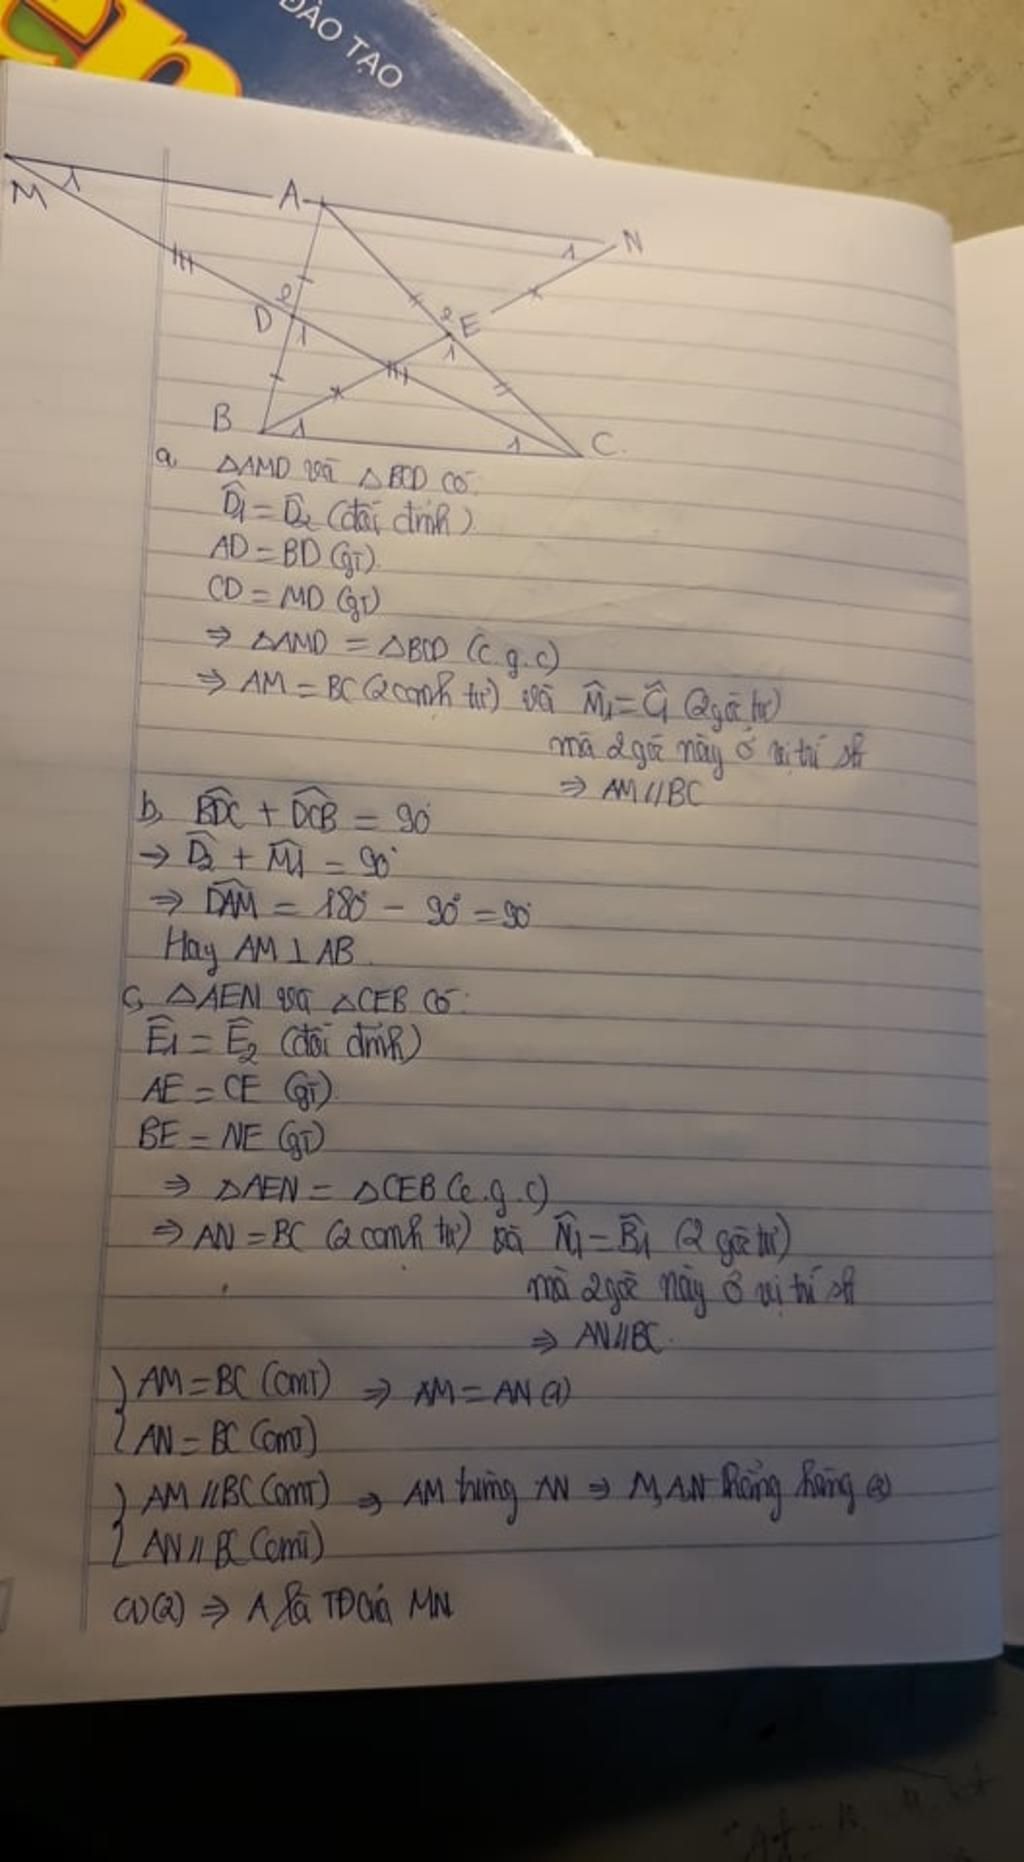 ĐÀO TẠO
M 1 A N 1
D 2 1 E 2 1
B 1 1 C
a, △AMD và △BCD có:
D̂1 = D̂2 (đối đỉnh)
AD = BD (gt)
CD = MD (gt)
⇒ △AMD = △BCD (c.g.c)
⇒ AM = BC (2 cạnh tứ) và M̂1 = Ĉ1 (2 góc tứ)
mà 2 góc này ở vị trí slt
⇒ AM // BC
b, BDC + DCB = 90°
→ D̂2 + M̂1 = 90°
⇒ DAM = 180° - 90° = 90°
Hay AM ⊥ AB
c, △AEN và △CEB có:
Ê1 = Ê2 (đối đỉnh)
AE = CE (gt)
BE = NE (gt)
⇒ △AEN = △CEB (c.g.c)
⇒ AN = BC (2 cạnh tứ) và N̂1 = B̂1 (2 góc tứ)
mà 2 góc này ở vị trí slt
⇒ AN // BC.
AM = BC (cmt) ⇒ AM = AN (1)
AN = BC (cmt)
AM // BC (cmt) ⇒ AM trùng AN ⇒ M,A,N thẳng hàng (2)
AN // BC (cmt)
(1)(2) ⇒ A là TĐ của MN